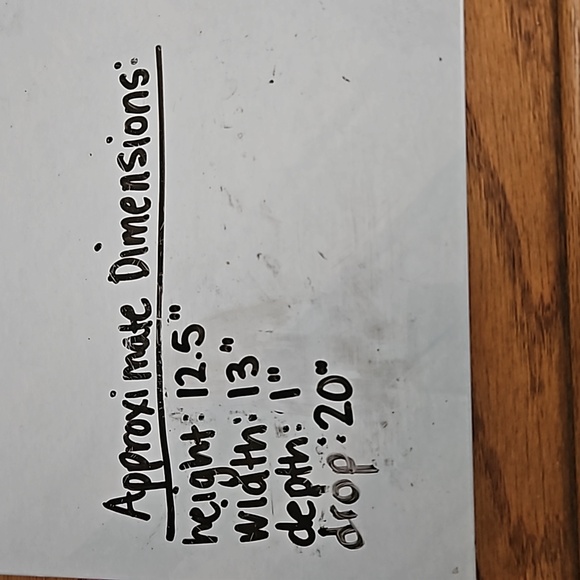 Approximate Dimensions:
height: 12.5"
width: 13"
depth: 1"
drop: 20"